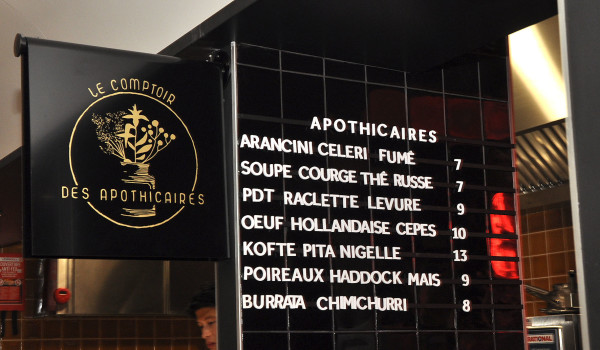 LE COMPTOIR
DES APOTHICAIRES
APOTHICAIRES
ARANCINI CELERI FUMÉ 7
SOUPE COURGE THÉ RUSSE 7
PDT RACLETTE LEVURE 9
OEUF HOLLANDAISE CEPES 10
KOFTE PITA NIGELLE 13
POIREAUX HADDOCK MAIS 9
BURRATA CHIMICHURRI 8